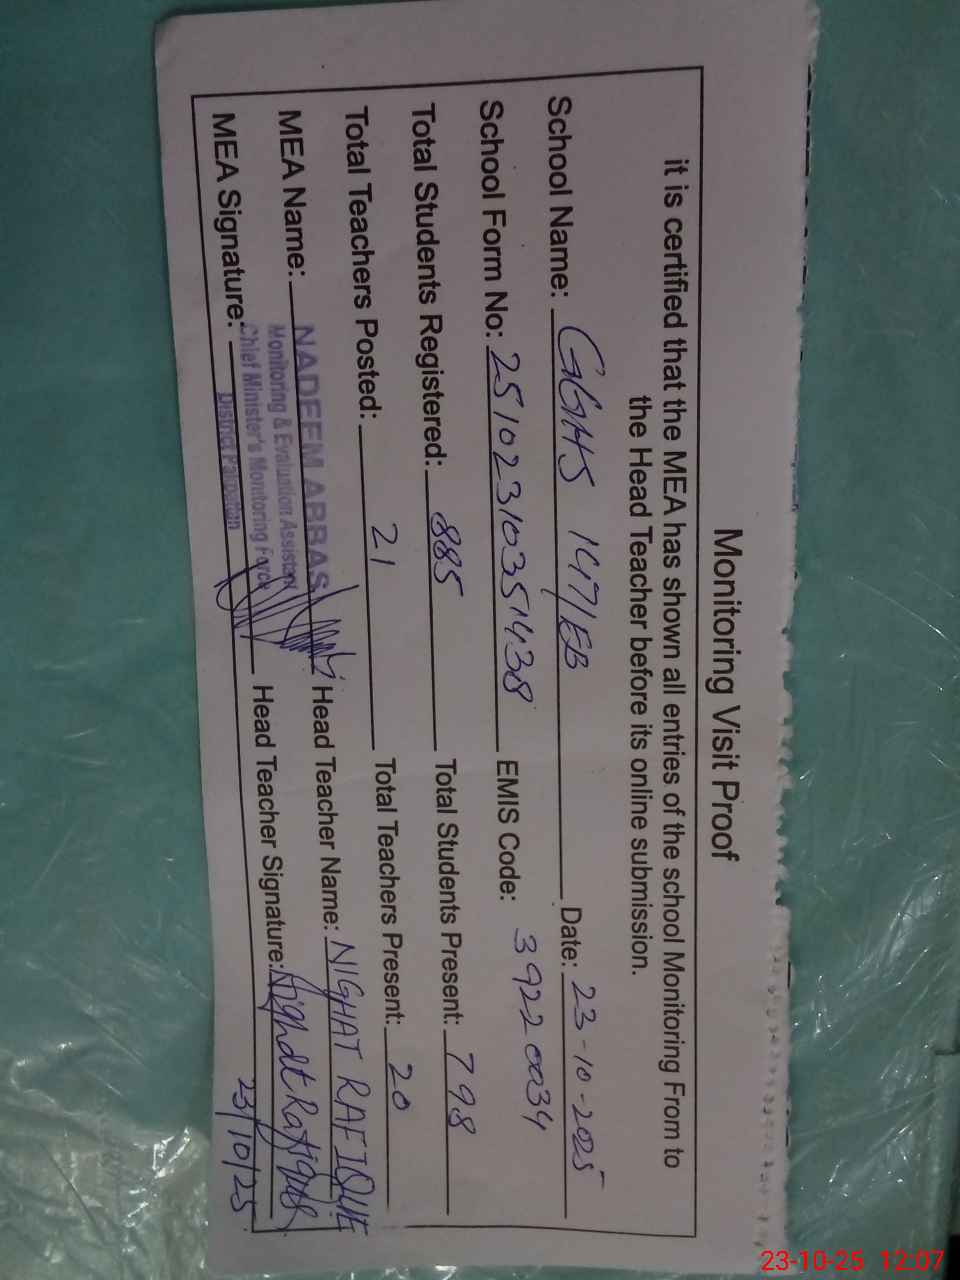 Monitoring Visit Proof
it is certified that the MEA has shown all entries of the school Monitoring From to
the Head Teacher before its online submission.
School Name: GGHS 147/EB Date: 23-10-2025
School Form No: 25102310351438 EMIS Code: 39220034
Total Students Registered: 885 Total Students Present: 798
Total Teachers Posted: 21 Total Teachers Present: 20
MEA Name: NADEEM ABBAS Head Teacher Name: NIGHAT RAFIQUE
Monitoring & Evaluation Assistant
Chief Minister's Monitoring Force
District Pakpattan
MEA Signature: Head Teacher Signature: Nighat Rafique
23/10/25
23-10-25 12:07